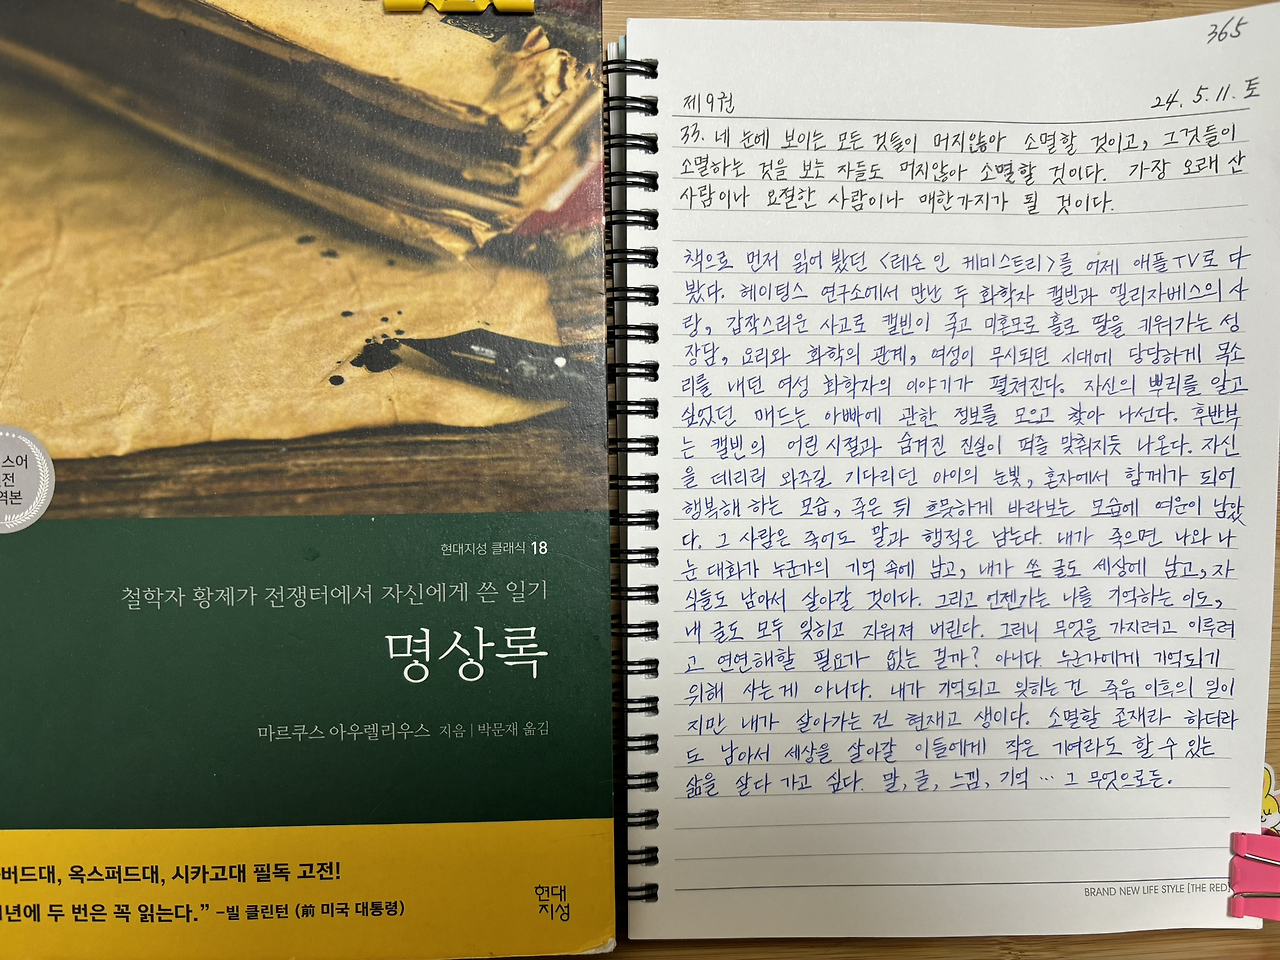 스어
전
역본
현대지성 클래식 18
철학자 황제가 전쟁터에서 자신에게 쓴 일기
명상록
마르쿠스 아우렐리우스 지음 | 박문재 옮김
버드대, 옥스퍼드대, 시카고대 필독 고전!
년에 두 번은 꼭 읽는다.” –빌 클린턴 (前 미국 대통령)
현대
지성
365
제9권 24. 5. 11. 토
33. 네 눈에 보이는 모든 것들이 머지않아 소멸할 것이고, 그것들이
소멸하는 것을 보는 자들도 머지않아 소멸할 것이다. 가장 오래 산
사람이나 요절한 사람이나 매한가지가 될 것이다.
책으로 먼저 읽어 봤던 <레슨 인 케미스트리>를 어제 애플TV로 다
봤다. 헤이팅스 연구소에서 만난 두 화학자 캘빈과 엘리자베스의 사
랑, 갑작스러운 사고로 캘빈이 죽고 미혼모로 홀로 딸을 키워가는 성
장담, 요리와 화학의 관계, 여성이 무시되던 시대에 당당하게 목소
리를 내던 여성 화학자의 이야기가 펼쳐진다. 자신의 뿌리를 알고
싶었던 매드는 아빠에 관한 정보를 모으고 찾아 나선다. 후반부
는 캘빈의 어린 시절과 숨겨진 진실이 퍼즐 맞춰지듯 나온다. 자신
을 데리러 와주길 기다리던 아이의 눈빛, 혼자에서 함께가 되어
행복해 하는 모습, 죽은 뒤 흐뭇하게 바라보는 모습에 여운이 남았
다. 그 사람은 죽어도 말과 행적은 남는다. 내가 죽으면 나와 나
눈 대화가 누군가의 기억 속에 남고, 내가 쓴 글도 세상에 남고, 자
식들도 남아서 살아갈 것이다. 그리고 언젠가는 나를 기억하는 이도,
내 글도 모두 잊히고 지워져 버린다. 그러니 무엇을 가지려고 이루려
고 연연해할 필요가 없는 걸까? 아니다. 누군가에게 기억되기
위해 사는 게 아니다. 내가 기억되고 잊히는 건 죽음 이후의 일이
지만 내가 살아가는 건 현재고 생이다. 소멸할 존재라 하더라
도 남아서 세상을 살아갈 이들에게 작은 기여라도 할 수 있는
삶을 살다 가고 싶다. 말, 글, 느낌, 기억 … 그 무엇으로든.
BRAND NEW LIFE STYLE [THE RED]